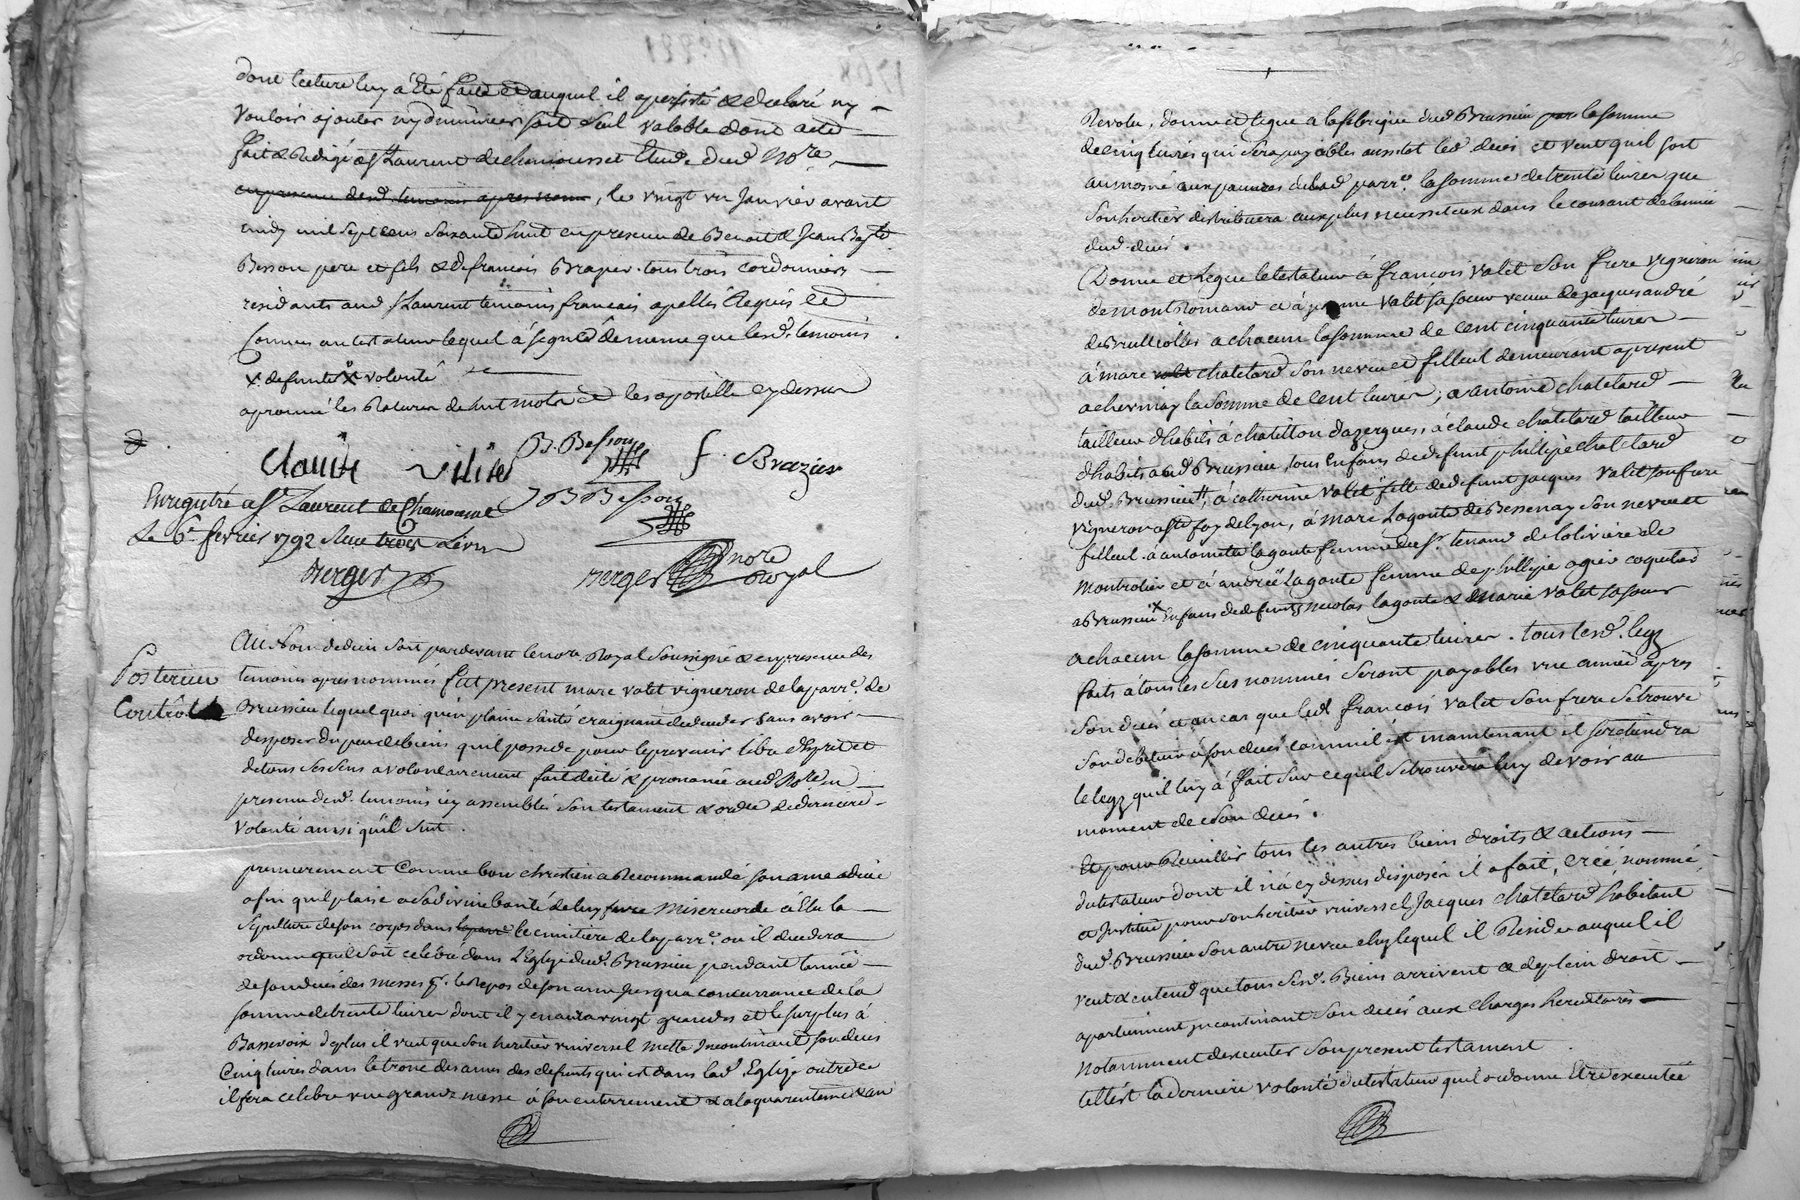 dont lecture luy a été faite et auquel il a persisté et declaré ny
vouloir ajouter ny diminuer soit seul valable dont acte
fait et redigé a St Laurent de chamousset Etude dud. nore
en presence desd. temoins apres nom, le vingt un Janvier avant
midy mil sept cens soixante huit en presence de Benoit et Jean Bapte
Besson pere et fils et de francois Brazier tous trois cordonniers
residants aud. St Laurent temoins francais apellés requis et
connus au testateur lequel a signé de meme que lesd. temoins
x defunte x volonté
aprouvé les ratures de huit mots et les apostille cy dessus
Claude B. Besson f. Brazier
Enregistré a St Laurent de Chamousset JB Besson
Le 6e fevrier 1792 Reçu trois Livres
Berger Berger nore Royal
Posterieur
Controlle
Au Nom de dieu soit par devant le nore Royal soussigné et en presence des
temoins apres nommés fut present marc valet vigneron de la parre. de
Brussieu lequel quoi qu'en plaine santé craignant de deceder sans avoir
disposer du peu de biens qu'il possede pour le prevenir libre d'esprit et
de tous ses sens a volontairement fait dicté et prononcé aud. Nore en
presence desd. temoins icy assemblés son testament et ordre de derniere
volonté ainsi qu'il suit.
premierement Comme bon chrestien a Recommandé son ame a dieu
afin qu'il plaise a sa divine bonté de luy faire misericorde a élu la
sepulture de son corps dans le cimitiere de la parre. ou il decedera
ordonne quil soit celebré dans l'Eglise dud. Brussieu pendant l'année
de son decés des messes pr. le repos de son ame jusqu'a concurrance de la
somme de trente livres dont il y en aura vingt grandes et le surplus á
Basse voix de plus il veut que son heritier universel mette Incontinant son deces
Cinq livres dans le tronc des ames des defunts qui est dans lad. Eglise outre ce
il fera celebre une grande messe á son enterrement et a la quarantaine et an
Revolu, donne et legue a la fabrique dud. Brussieu la somme
de cinq livres qui sera payables aussitot led. deces et veut quil soit
aumoné aux pauvres de lad. parre. la somme de trente livres que
son heritier distribuera aux plus necessiteux dans le courant de l'année
dud. deces.
Donne et legue le testateur á francois valet son frere vigneron
de montromant et á jeanne valet sa soeur veuve de jacques andré
de Brullioles a chacun la somme de cent cinquante livres
á marc chatelard son neveu et filleul demeurant apresent
a chevinay la somme de cent livres; a antoine chatelard
tailleur d'habits á chatillon d'azergues, á claude chatelard tailleur
d'habits aud. Brussieu, tous enfans de defunt phillipe chatelard
dud. Brussieu, á catherine valet fille de defunt jacques valet son frere
vigneron a ste foy de lyon, á marc lagoute de Bessenay son neveu et
filleul, á antoinette lagoute femme du Sr. tenand de lolivière de
montrotier et á andrée lagoute femme de phillipe agier coquetier
a Brussieu x Enfans de defunts nicolas lagoute et marie valet sa soeur
a chacun la somme de cinquante livres. tous lesd. legs
faits á tous les sus nommés seront payables une année apres
son deces et en cas que led. francois valet son frere se trouve
son debiteur á son deces comm'il est maintenant il se retiendra
le legs qu'il luy á fait sur ce quil se trouvera luy devoir au
moment de son deces.
Et pour Recuillir tous les autres biens droits et actions
du testateur dont il n'a cy dessus disposer il a fait, créé, nommé
et Institué pour son heritier universel Jacques chatelard habitant
dud. Brussieu son autre neveu chez lequel il Reside auquel il
veut et entend que tous sesd. Biens arrivent et de plein droit
apartiennent incontinant son deces aux charges hereditaires
notamment d'executer son present testament.
telle est la derniere volonté du testateur qu'il ordonne Etre executée